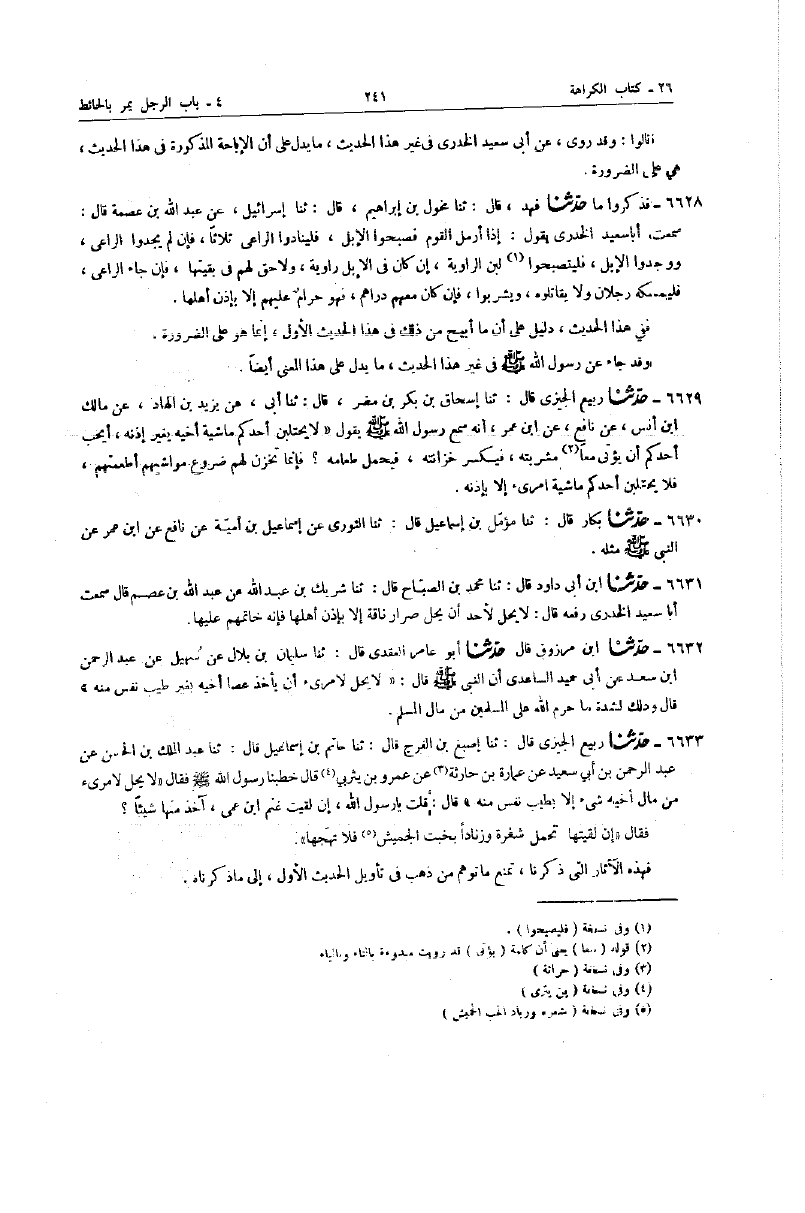 ٢٦ ـ كتاب الكراهة ٢٤١ ٤ ـ باب الرجل يمر بالحائط
قالوا : وقد روى ، عن أبى سعيد الخدرى فى غير هذا الحديث ، ما يدل على أن الإباحة المذكورة فى هذا الحديث ،
هى على الضرورة .
٦٦٢٨ ـ فذكروا ما حدثنا فهد ، قال : ثنا مخول بن إبراهيم ، قال : ثنا إسرائيل ، عن عبد الله بن عصمة قال :
سمعت أبا سعيد الخدرى يقول : إذا أرمل القوم فصبحوا الإبل ، فلينادوا الراعى ثلاثاً ، فإن لم يجدوا الراعى ،
ووجدوا الإبل ، فليتصبحوا (١) لبن الراوية ، إن كان فى الإبل راوية ، ولا حق لهم فى بقيتها ، فإن جاء الراعى ،
فليمسكه رجلان ولا يقاتلوه ، ويشربوا ، فإن كان معهم دراهم ، فهو حرام عليهم إلا بإذن أهلها .
ففى هذا الحديث ، دليل على أن ما أبيح من ذلك فى هذا الحديث الأول ، إنما هو على الضرورة .
وقد جاء عن رسول الله ﷺ فى غير هذا الحديث ، ما يدل على هذا المعنى أيضاً .
٦٦٢٩ ـ حدثنا ربيع الجيزى قال : ثنا إسحاق بن بكر بن مضر ، قال : ثنا أبى ، عن يزيد بن الهاد ، عن مالك
ابن أنس ، عن نافع ، عن ابن عمر ، أنه سمع رسول الله ﷺ يقول « لا يحتلبن أحدكم ماشية أخيه بغير إذنه ، أيحب
أحدكم أن يؤتى معاً(٢) مشربته ، فيكسر خزانته ، فيحمل طعامه ؟ فإنما تخزن لهم ضروع مواشيهم أطعمتهم ،
فلا يحتلبن أحدكم ماشية امرىء إلا بإذنه .
٦٦٣٠ ـ حدثنا بكار قال : ثنا مؤمّل بن إسماعيل قال : ثنا الثورى عن إسماعيل بن أميّة عن نافع عن ابن عمر عن
النبى ﷺ مثله .
٦٦٣١ ـ حدثنا ابن أبى داود قال : ثنا محمد بن الصبّاح قال : ثنا شريك بن عبد الله عن عبد الله بن عصم قال سمعت
أبا سعيد الخدرى رفعه قال : لا يحل لأحد أن يحل صرار ناقة إلا بإذن أهلها فإنه خاتمهم عليها .
٦٦٣٢ ـ حدثنا ابن مرزوق قال حدثنا أبو عامر العقدى قال : ثنا سليمان بن بلال عن سُهيل عن عبد الرحمن
ابن سعد عن أبى حميد الساعدى أن النبى ﷺ قال : « لا يحل لامرىء أن يأخذ عصا أخيه بغير طيب نفس منه »
قال وذلك لشدة ما حرم الله على المسلمين من مال المسلم .
٦٦٣٣ ـ حدثنا ربيع الجيزى قال : ثنا إصبغ بن الفرج قال : ثنا حاتم بن إسماعيل قال : ثنا عبد الملك بن الحسن عن
عبد الرحمن بن أبي سعيد عن عمارة بن حارثة(٣) عن عمرو بن يثربي(٤) قال خطبنا رسول الله ﷺ فقال « لا يحل لامرىء
من مال أخيه شىء إلا بطيب نفس منه » قال : قلت يا رسول الله ، إن لقيت غنم ابن عمى ، آخذ منها شيئاً ؟
فقال «إن لقيتها تحمل شفرة وزناداً بخبت الجميش(٥) فلا تهجها».
فهذه الآثار التى ذكرنا ، تمنع ما توهم من ذهب فى تأويل الحديث الأول ، إلى ما ذكرناه .
(١) وفى نسخة ( فليصبحوا ) .
(٢) قوله ( معا ) يعنى أن كلمة ( يؤتى ) قد رويت مبدوءة بالتاء وبالياء
(٣) وفى نسخة ( حراثة )
(٤) وفى نسخة ( بن يثرى )
(٥) وفى نسخة ( الجميش )